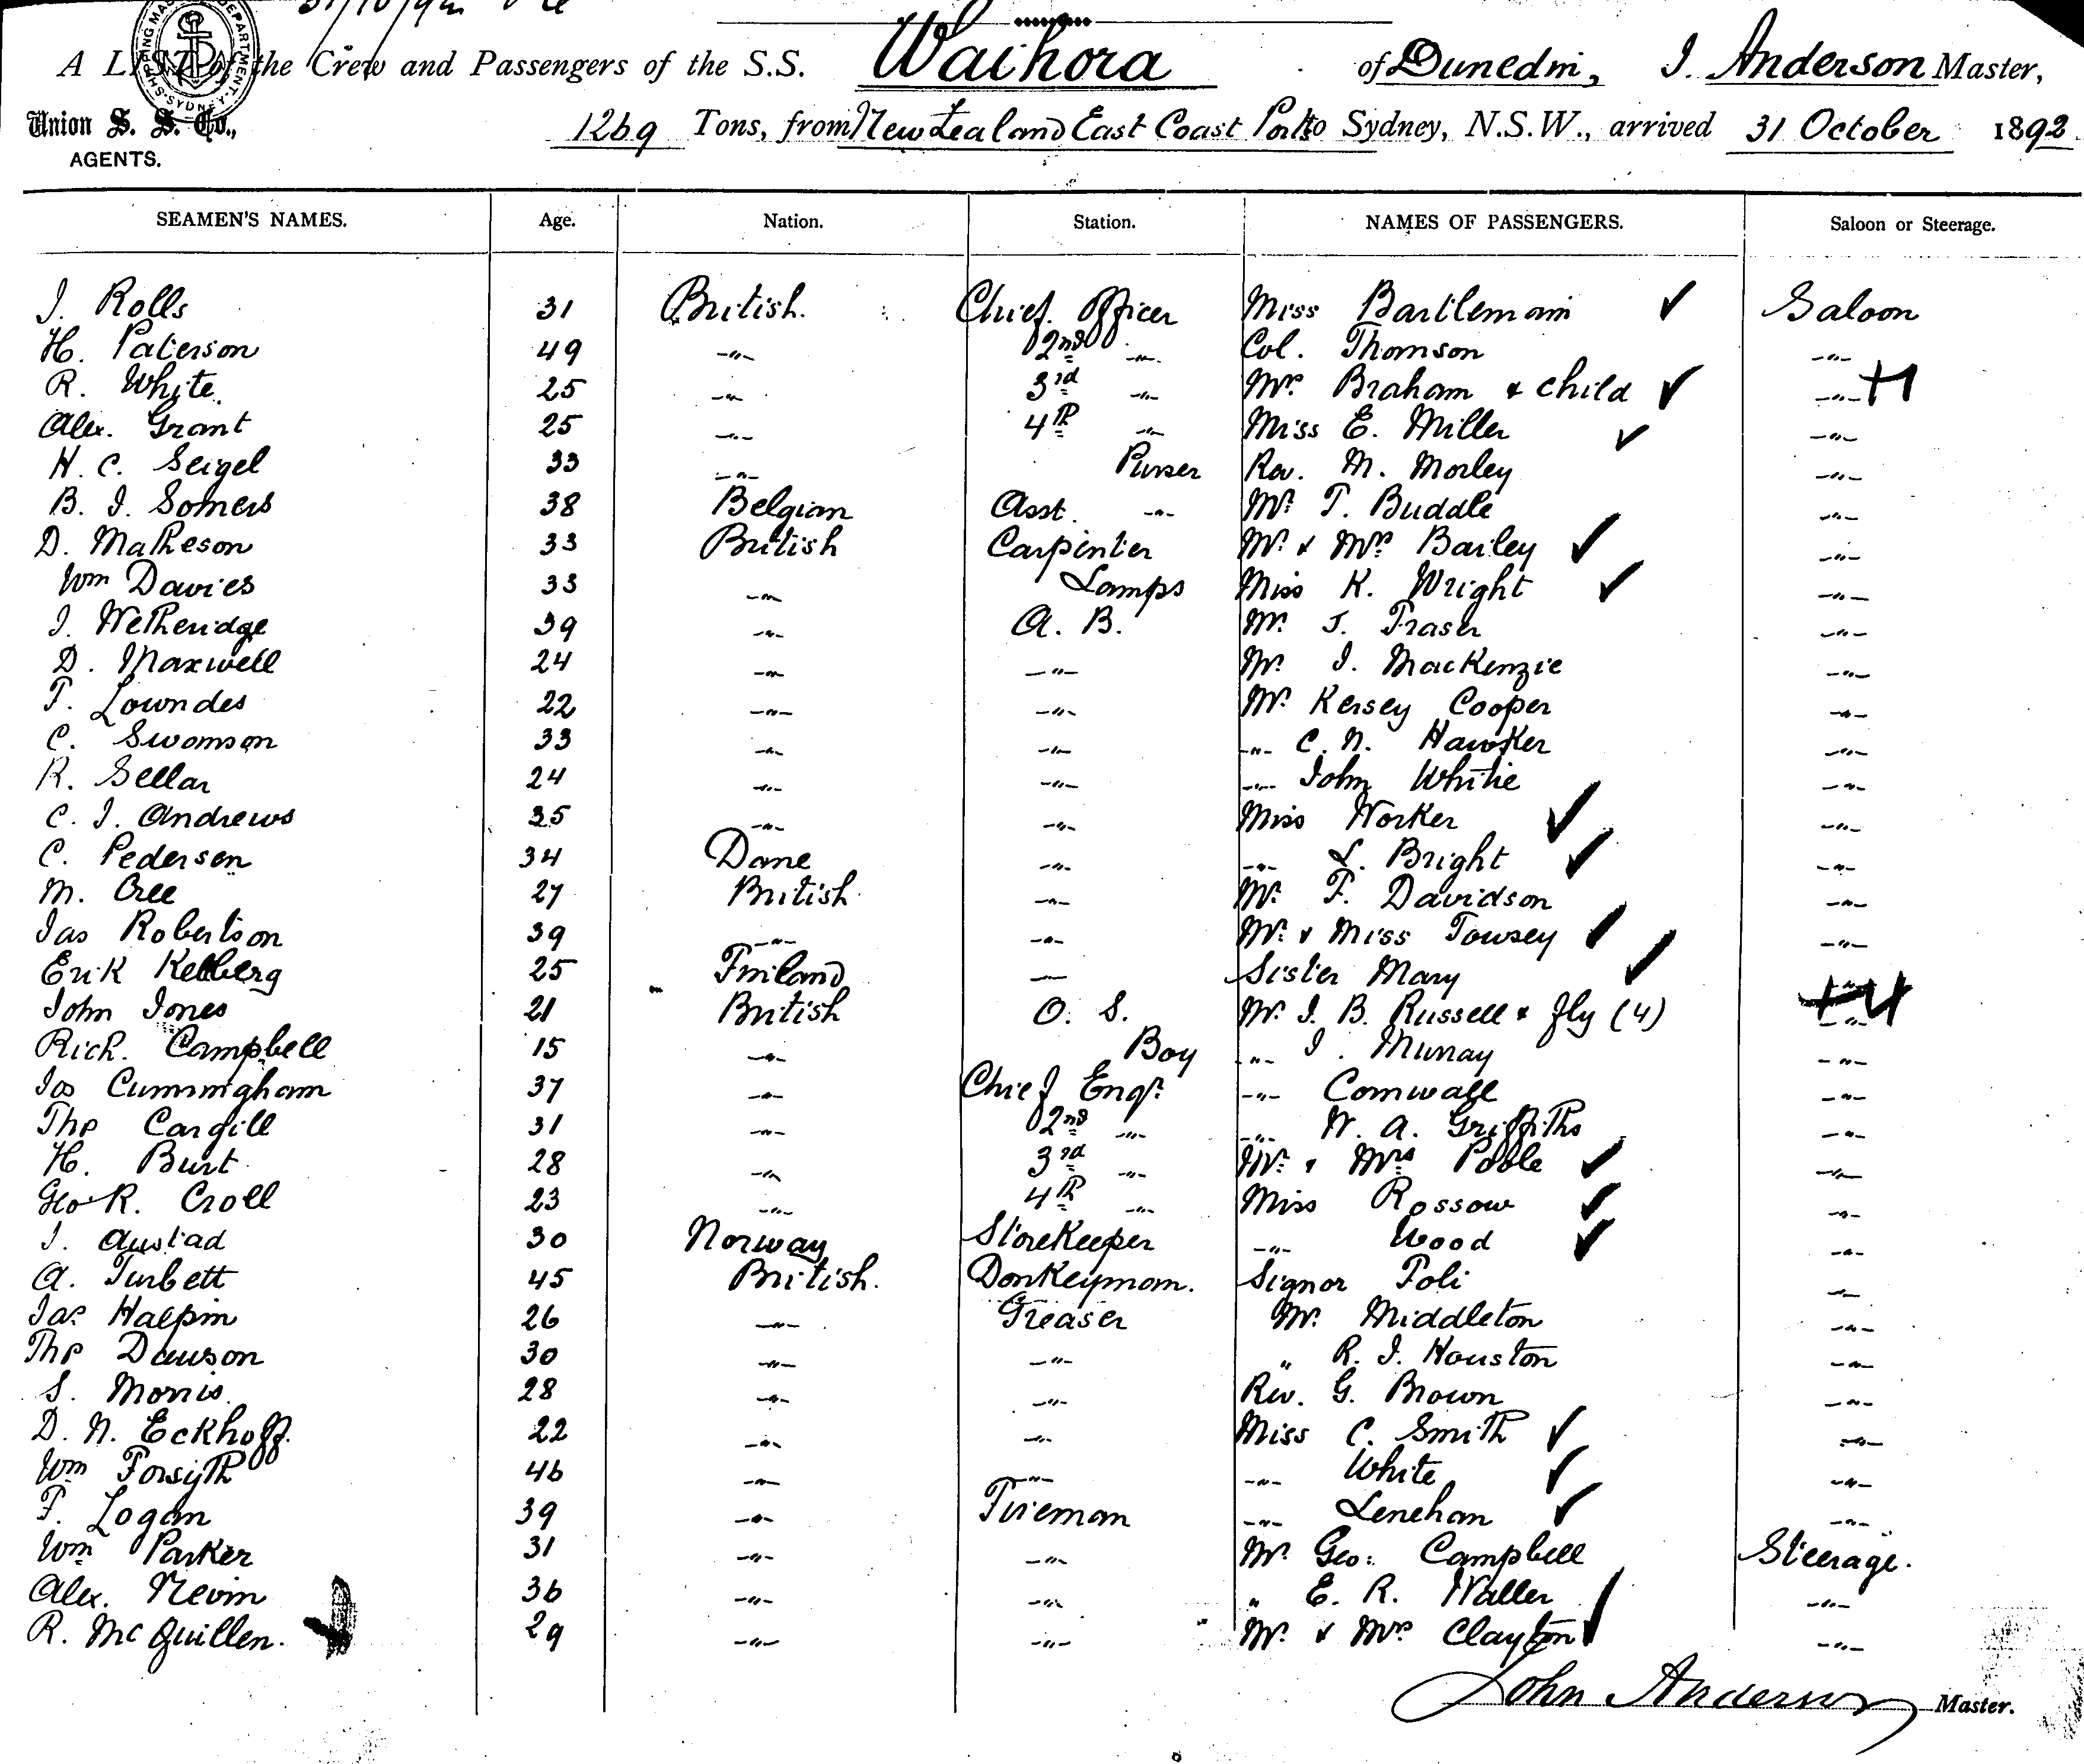 31/10/92
SHIPPING MASTER'S DEPARTMENT SYDNEY
A LIST of the Crew and Passengers of the S.S. Waihora of Dunedin, J. Anderson Master,
Union S. S. Co., 1269 Tons, from New Zealand East Coast Ports to Sydney, N.S.W., arrived 31 October 1892
AGENTS.
SEAMEN'S NAMES. Age. Nation. Station. NAMES OF PASSENGERS. Saloon or Steerage.
J. Rolls 31 British. Chief Officer Miss Bartlemain ✓ Saloon
H. Paterson 49 -"- 2nd -"- Col. Thomson -"-
R. White 25 -"- 3rd -"- Mrs Braham & child ✓ -"- +1
Alex. Grant 25 -"- 4th -"- Miss E. Miller ✓ -"-
H. C. Seigel 33 -"- Purser Rev. M. Morley -"-
B. J. Somers 38 Belgian Asst. -"- Mr T. Buddle -"-
D. Matheson 33 British Carpenter Mr & Mrs Bailey ✓ -"-
Wm Davies 33 -"- Lamps Miss K. Wright ✓ -"-
J. Wetheridge 39 -"- A. B. Mr J. Fraser -"-
D. Maxwell 24 -"- -"- Mr J. MacKenzie -"-
T. Lowndes 22 -"- -"- Mr Kersey Cooper -"-
C. Swanson 33 -"- -"- -"- C. N. Hawker -"-
R. Sellar 24 -"- -"- -"- John White -"-
C. J. Andrews 35 -"- -"- Miss Worker ✓ -"-
C. Pedersen 34 Dane -"- -"- L. Bright ✓ -"-
M. Cree 27 British -"- Mr F. Davidson -"-
Jas Robertson 39 -"- -"- Mr & Miss Towsey ✓ -"-
Erik Kellberg 25 Finland -"- Sister Mary ✓ -"-
John Jones 21 British O. S. Mr J. B. Russell & fly (4) -"- +4
Rich. Campbell 15 -"- Boy -"- J. Murray -"-
Jas Cunningham 37 -"- Chief Engr. -"- Cornwall -"-
Thos Cargill 31 -"- 2nd -"- -"- W. A. Griffiths -"-
H. Burt 28 -"- 3rd -"- Mr & Mrs Poole ✓ -"-
Geo R. Croll 23 -"- 4th -"- Miss Rossow ✓ -"-
J. Austad 30 Norway Storekeeper -"- Wood ✓ -"-
A. Turbett 45 British. Donkeyman. Signor Foli -"-
Jas Halpin 26 -"- Greaser Mr. Middleton -"-
Thos Dawson 30 -"- -"- " R. J. Houston -"-
S. Morris 28 -"- -"- Rev. G. Brown -"-
D. N. Eckhoff. 22 -"- -"- Miss C. Smith ✓ -"-
Wm Forsyth 46 -"- -"- -"- White ✓ -"-
F. Logan 39 -"- Fireman -"- Lenehan ✓ -"-
Wm Parker 31 -"- -"- Mr Geo: Campbell Steerage.
Alex. Nevin 36 -"- -"- " E. R. Waller ✓ -"-
R. McQuillen. 29 -"- -"- Mr & Mrs Clayton ✓ -"-
John Anderson Master.